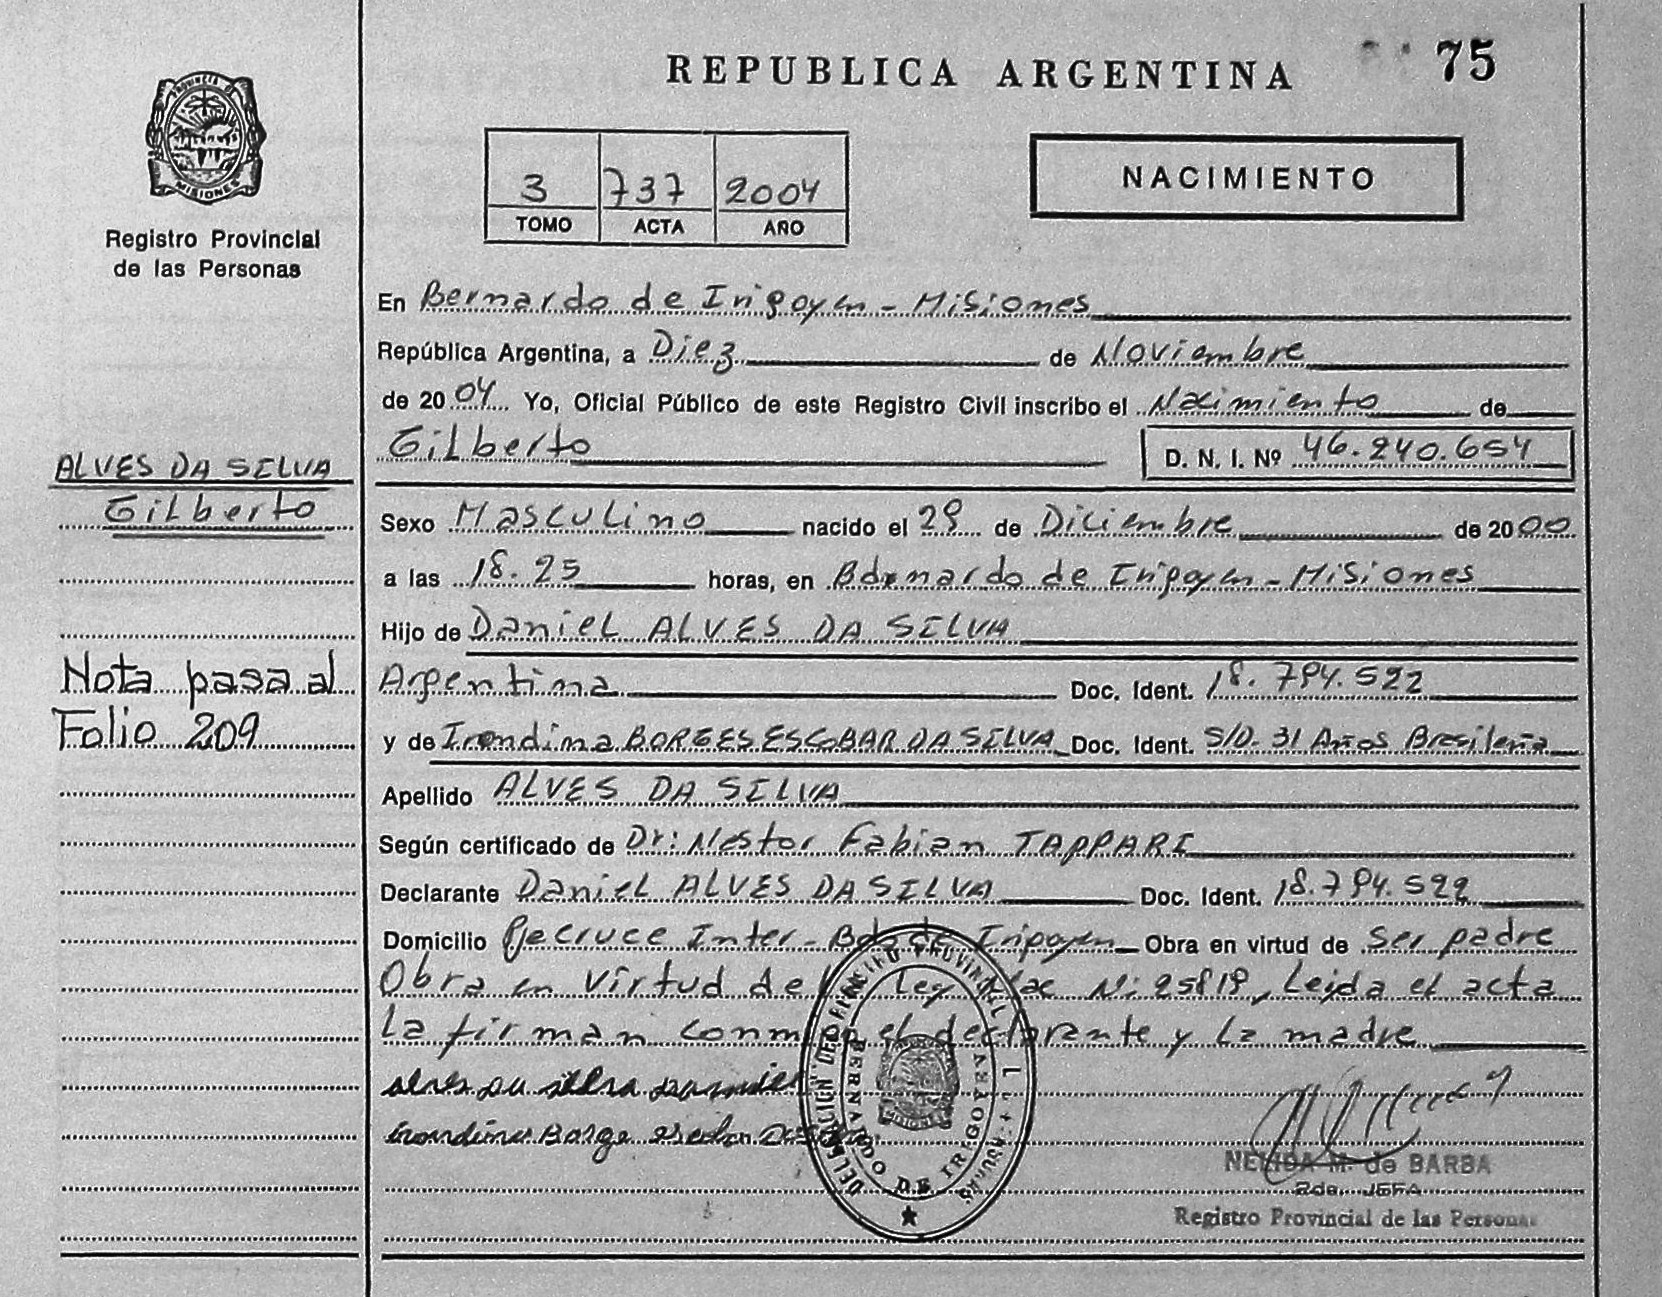 REPUBLICA ARGENTINA 75
PROVINCIA DE MISIONES
Registro Provincial
de las Personas
3 737 2004
TOMO ACTA AÑO
NACIMIENTO
En Bernardo de Irigoyen - Misiones
República Argentina, a Diez de Noviembre
de 2004 Yo, Oficial Público de este Registro Civil inscribo el Nacimiento de
Gilberto D. N. I. Nº 46.240.654
ALVES DA SILVA
Gilberto
Sexo Masculino nacido el 29 de Diciembre de 2000
a las 18.25 horas, en Bernardo de Irigoyen - Misiones
Hijo de Daniel ALVES DA SILVA
Nota pasa al
Folio 209
Argentina Doc. Ident. 18.794.522
y de Irondina BORGES ESCOBAR DA SILVA Doc. Ident. S/D. 31 Años Brasileña
Apellido ALVES DA SILVA
Según certificado de Dr: Nestor Fabian TAPPARI
Declarante Daniel ALVES DA SILVA Doc. Ident. 18.794.522
Domicilio Pje Cruce Inter - Bdo de Irigoyen Obra en virtud de ser padre
Obra en virtud de Ley Nac Nº: 25819, Leida el acta
La firman conmigo el declarante y la madre
DELEGACION DEL REGISTRO PROVINCIAL
BERNARDO DE IRIGOYEN
NELIDA M. de BARBA
2da. JEFA
Registro Provincial de las Personas